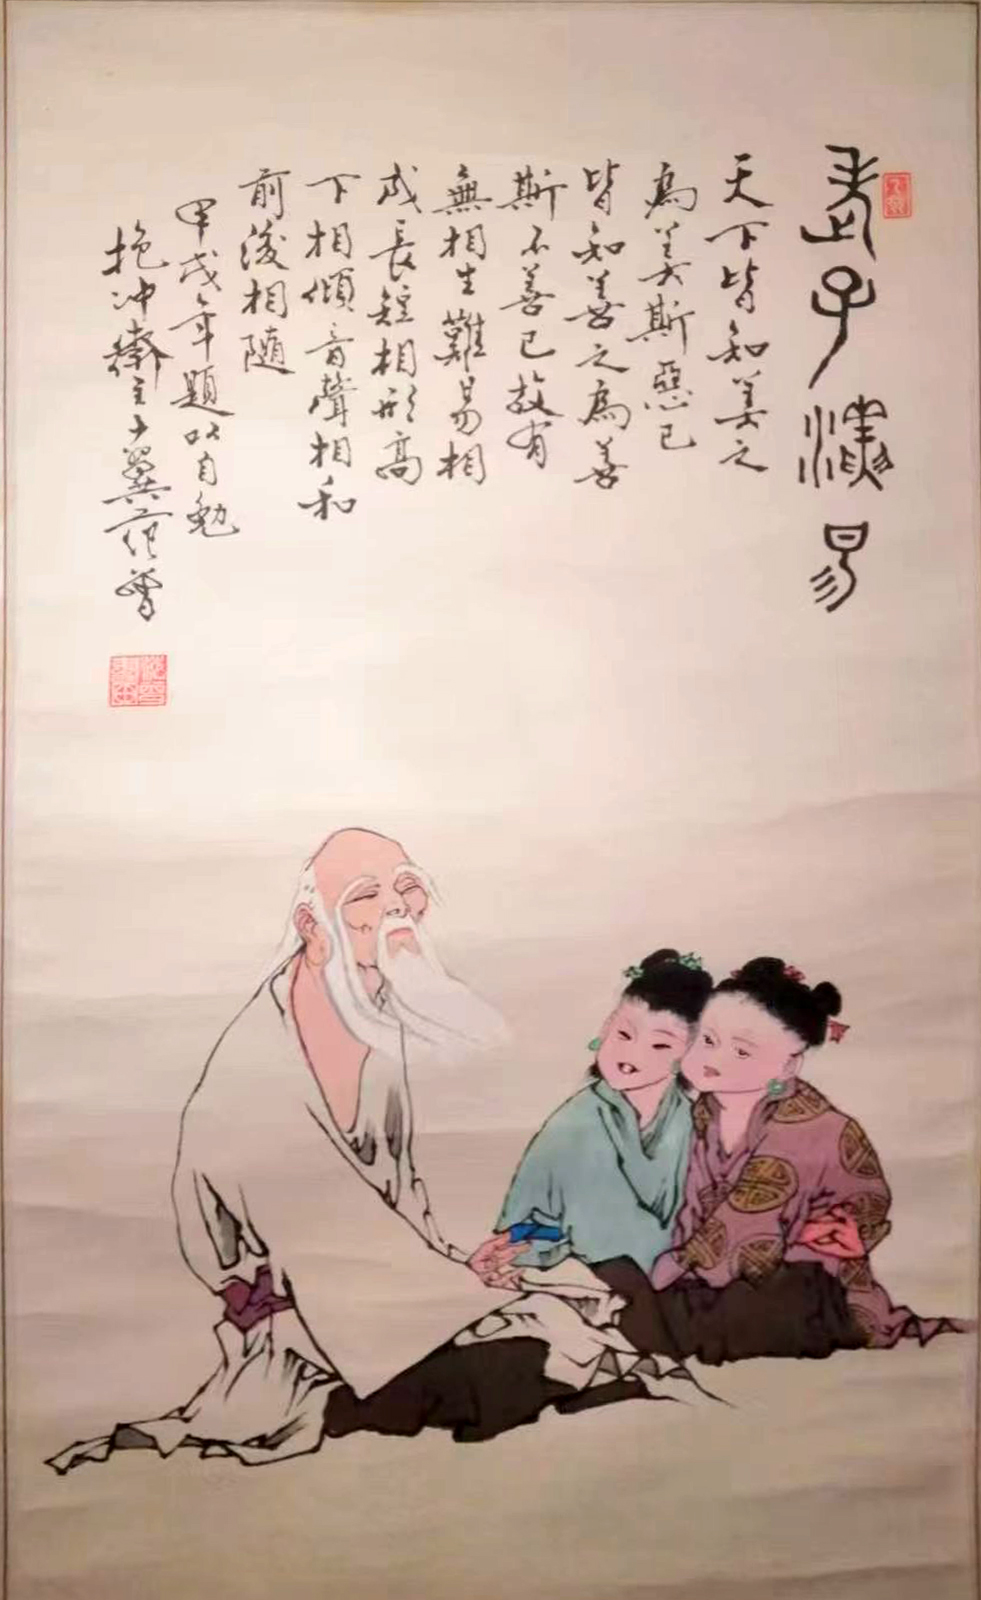 老子演易
天下皆知美之
為美斯惡已
皆知善之為善
斯不善已故有
無相生難易相
成長短相形高
下相傾音聲相和
前後相随
甲戌年題以自勉
抱冲齋主十翼范曾